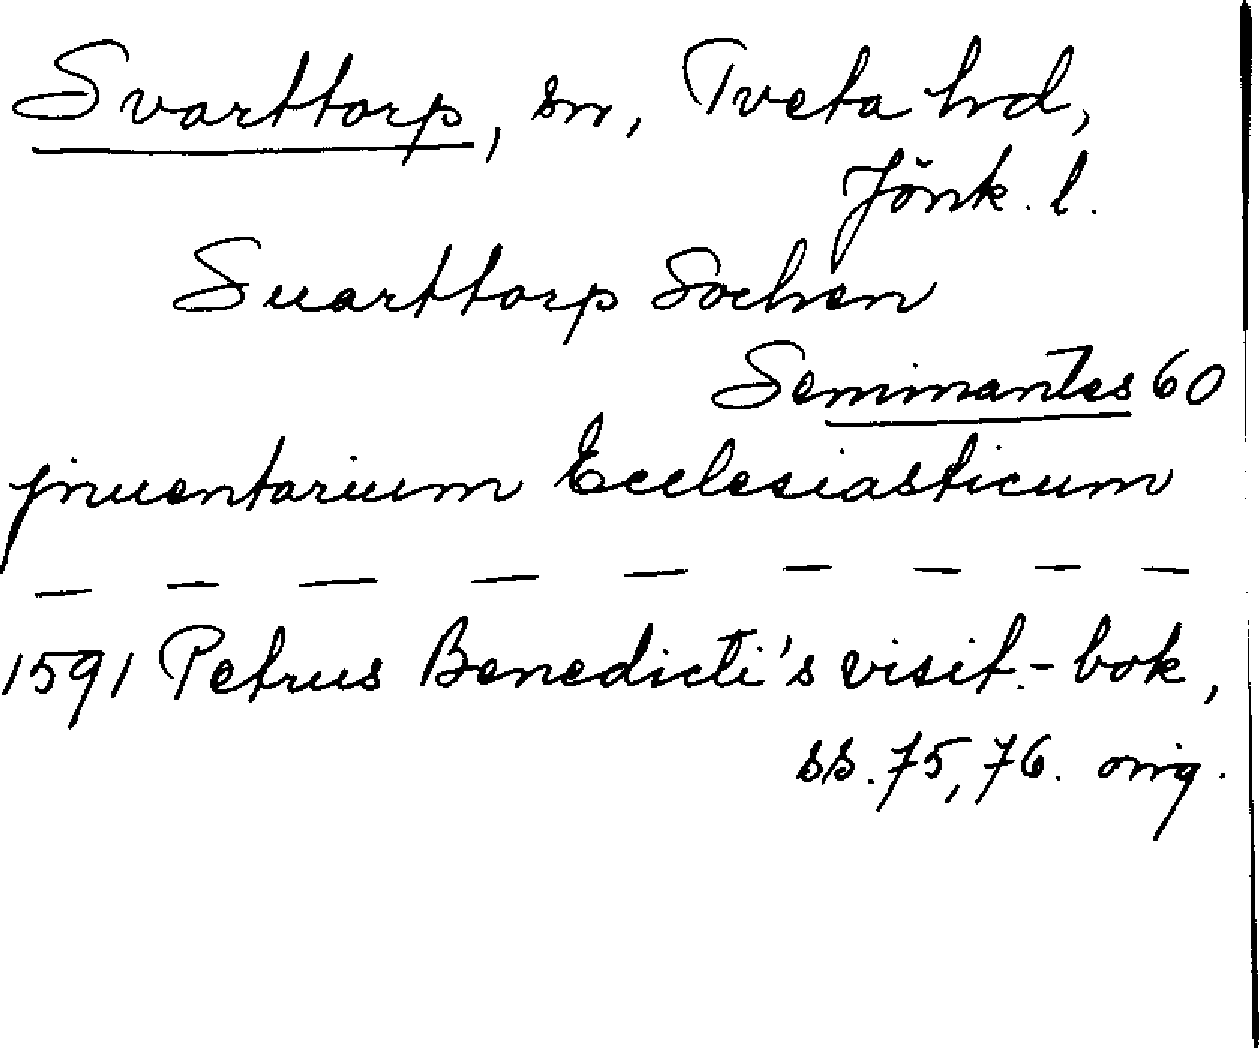 Svarttorp, sn, Tveta hd,
Jönk. l.
Suarttorp Sochen
Seminantes 60
jnuentarium Ecclesiasticum
— — — — — — — — —
1591 Petrus Benedicti's visit.-bok,
ss. 75, 76. orig.